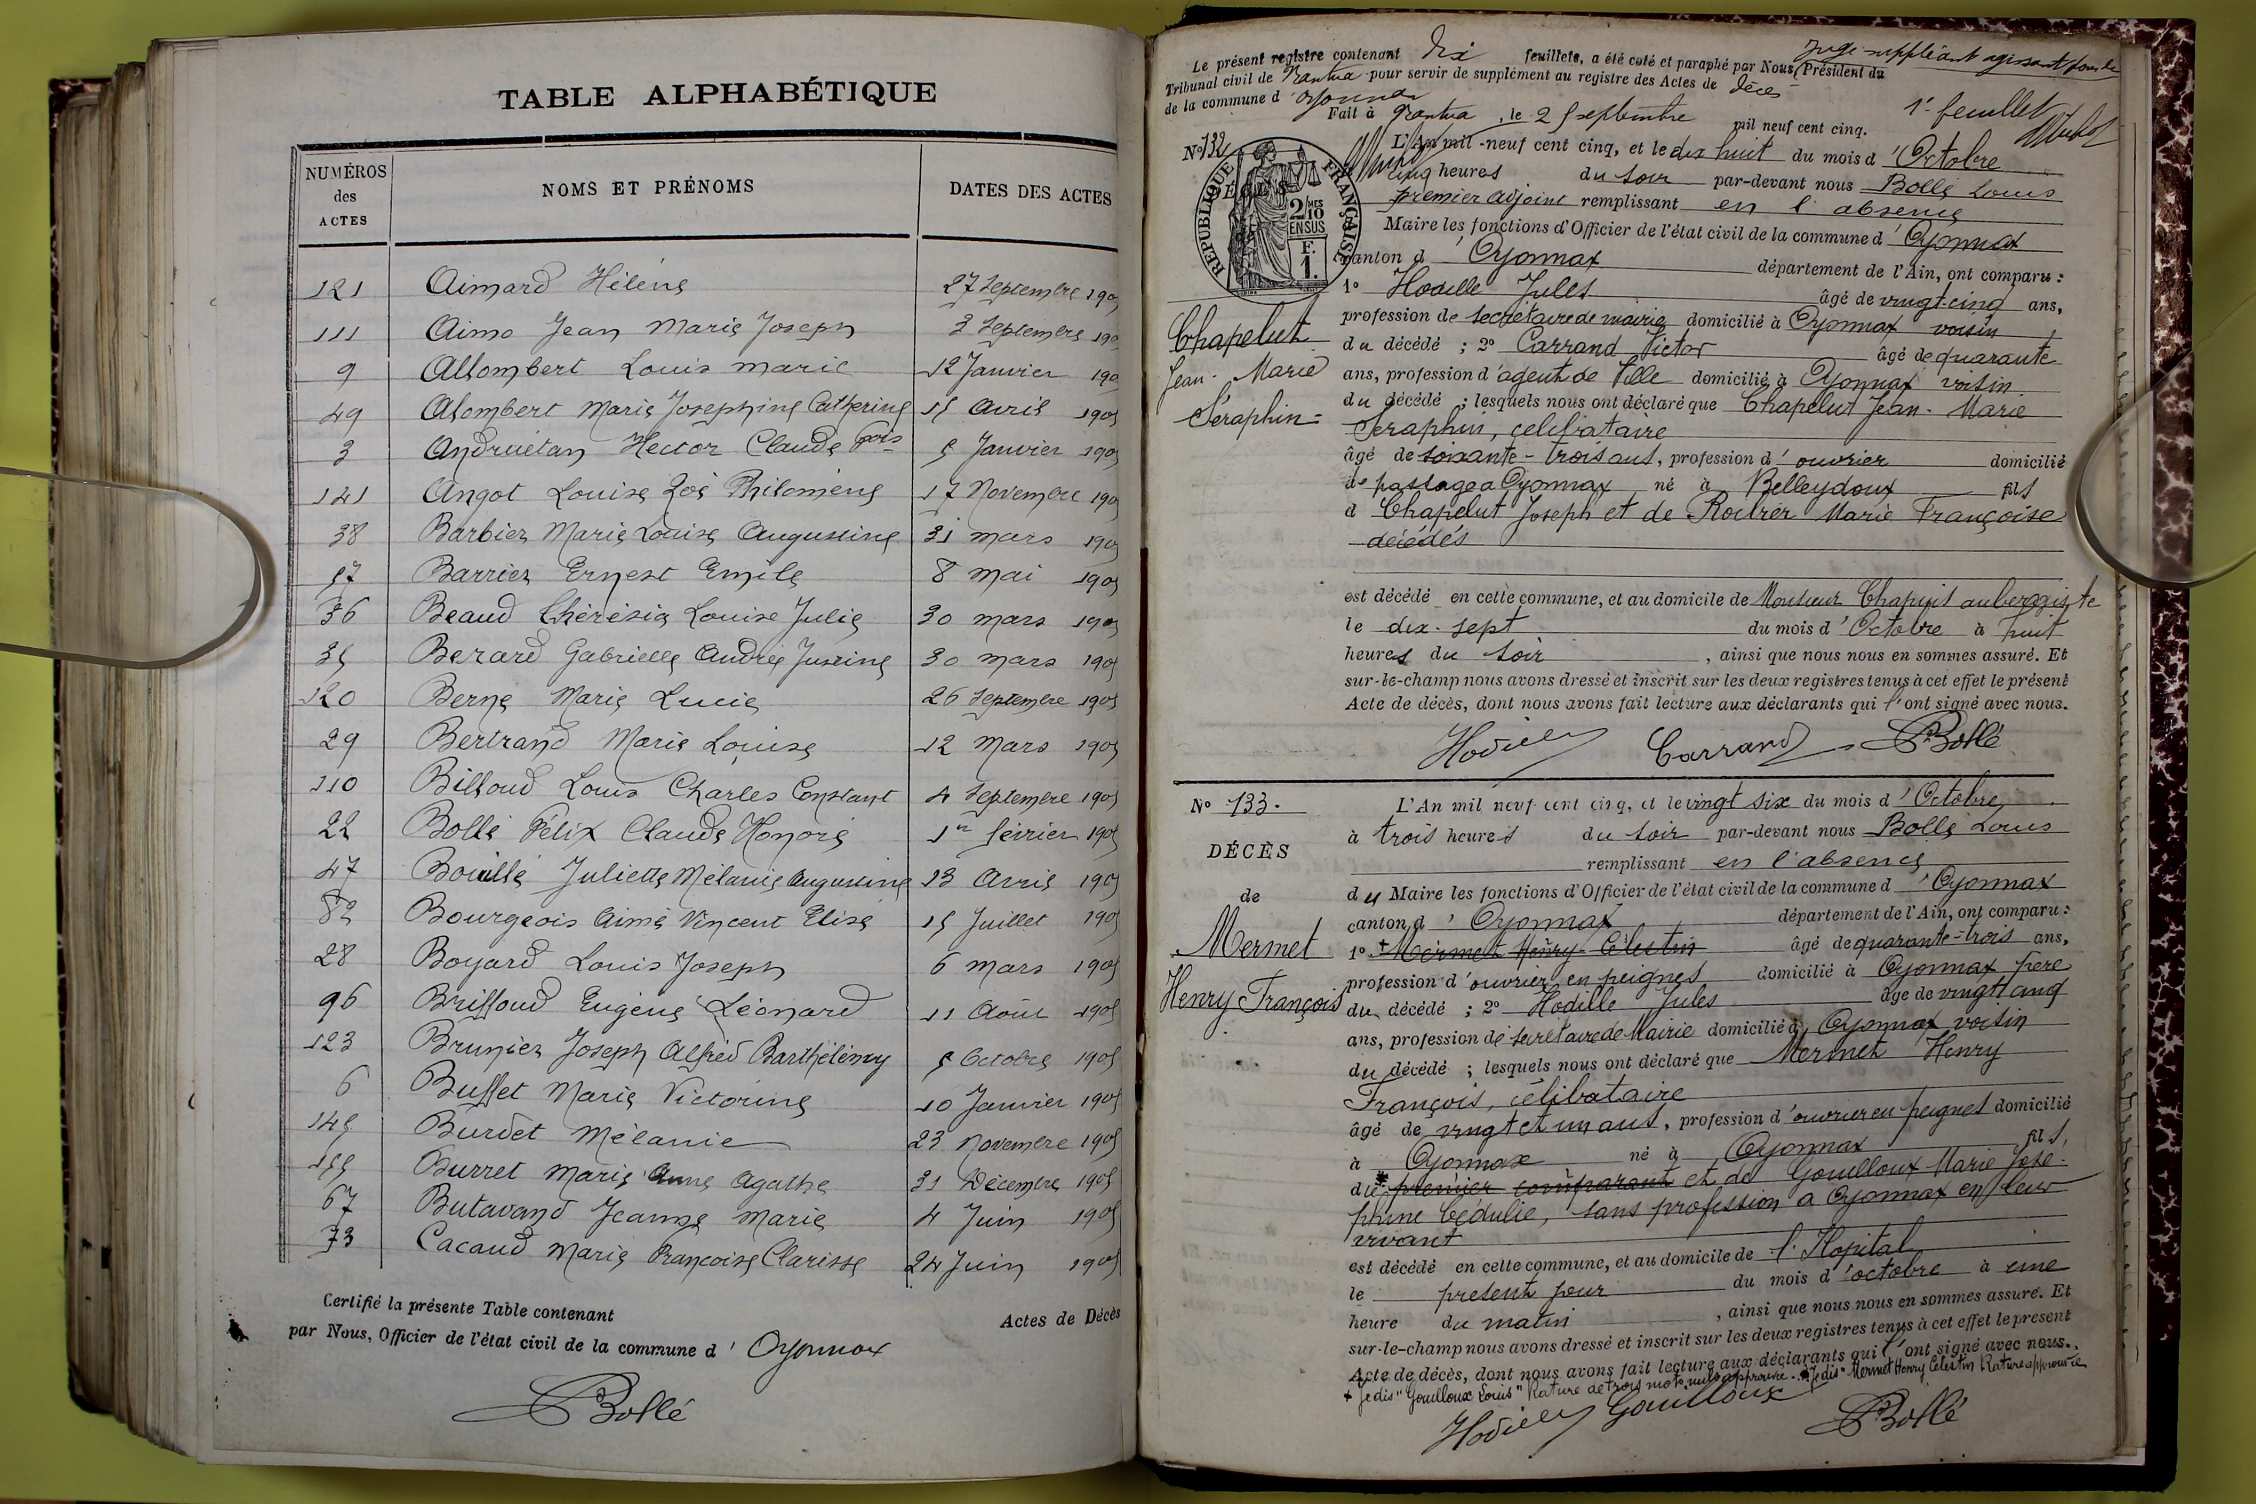 TABLE ALPHABÉTIQUE
NUMÉROS des ACTES
NOMS ET PRÉNOMS
DATES DES ACTES
121 Aimard Hélène 27 Septembre 190
111 Aimo Jean Marie Joseph 3 Septembre 190
9 Allombert Louis Marie 12 Janvier 190
49 Alombert Marie Josephine Catherine 15 Avril 1905
3 Andruétan Hector Claude Fçois 5 Janvier 1905
141 Angot Louise Zoé Philomène 17 Novembre 190
38 Barbier Marie Louise Augustine 31 mars 190
57 Barrier Ernest Emile 8 Mai 1905
36 Beaud Thérésia Louise Julie 30 mars 1905
35 Berard Gabrielle Andrée Justine 30 mars 1905
120 Berne Marie Lucie 26 Septembre 1905
29 Bertrand Marie Louise 12 Mars 1905
110 Billoud Louis Charles Constant 4 Septembre 1905
22 Bollé Félix Claude Honoré 1er février 1905
47 Bouillé Juliette Mélanie Augustine 13 Avril 1905
82 Bourgeois Aimé Vincent Elisé 15 Juillet 1905
28 Boyard Louis Joseph 6 mars 1905
96 Briffoud Eugène Léonard 11 Août 1905
123 Brunier Joseph Alfred Barthélémy 5 Octobre 1905
6 Buffet Marie Victorine 10 Janvier 1905
145 Burdet Mélanie 23 Novembre 1905
155 Burret Marie Anne Agathe 31 Décembre 1905
67 Butavand Jeanne Marie 4 Juin 1905
73 Cacaud Marie Françoise Clarisse 24 Juin 1905
Certifié la présente Table contenant Actes de Décès
par Nous, Officier de l'état civil de la commune d' Oyonnax
Bollé
Le présent registre contenant Dix feuillets, a été coté et paraphé par Nous, Président du
Juge suppléant agissant pour le
Tribunal civil de Nantua pour servir de supplément au registre des Actes de Décès
de la commune d' Oyonnax
Fait à Nantua, le 25 septembre mil neuf cent cinq.
1er feuillet
No 132
DÉCÈS
RÉPUBLIQUE FRANÇAISE
2/10 MES
EN SUS
F.
1.
Chapelut
Jean-Marie
Séraphin
L'An mil-neuf cent cinq, et le dix huit du mois d'Octobre
cinq heures du soir par-devant nous Bollé Louis
premier adjoint remplissant en l'absence
Maire les fonctions d'Officier de l'état civil de la commune d'Oyonnax
canton d'Oyonnax département de l'Ain, ont comparu :
1o Hodille Jules âgé de vingt-cinq ans,
profession de secrétaire de mairie domicilié à Oyonnax voisin
du décédé ; 2o Carrand Victor âgé de quarante
ans, profession d'agent de Ville domicilié à Oyonnax voisin
du décédé ; lesquels nous ont déclaré que Chapelut Jean-Marie
Séraphin, célibataire
âgé de soixante-trois ans, profession d'ouvrier domicilié
de passage à Oyonnax né à Belleydoux fils
d Chapelut Joseph et de Rochet Marie Françoise
décédés
est décédé en cette commune, et au domicile de Monsieur Chapuis aubergiste
le dix-sept du mois d'Octobre à huit
heures du soir, ainsi que nous nous en sommes assuré. Et
sur-le-champ nous avons dressé et inscrit sur les deux registres tenus à cet effet le présent
Acte de décès, dont nous avons fait lecture aux déclarants qui l'ont signé avec nous.
Hodille Carrand Bollé
No 133.
DÉCÈS
de
Mermet
Henry François
L'An mil neuf cent cinq, et le vingt six du mois d'Octobre,
à trois heures du soir par-devant nous Bollé Louis
remplissant en l'absence
du Maire les fonctions d'Officier de l'état civil de la commune d'Oyonnax
canton d'Oyonnax département de l'Ain, ont comparu :
1o + Mermet Henry-Célestin âgé de quarante-trois ans,
profession d'ouvrier en peignes domicilié à Oyonnax père
du décédé ; 2o Hodille Jules âgé de vingt cinq
ans, profession de secrétaire de Mairie domicilié à Oyonnax voisin
du décédé ; lesquels nous ont déclaré que Mermet Henry
François, célibataire
âgé de vingt et un ans, profession d'ouvrier en peignes domicilié
à Oyonnax né à Oyonnax fils,
du premier comparant et de Gouilloux Marie José-
phine Cédulie, sans profession à Oyonnax en leur
vivant
est décédé en cette commune, et au domicile de l'Hopital
le présent jour du mois d'octobre à une
heure du matin, ainsi que nous nous en sommes assuré. Et
sur-le-champ nous avons dressé et inscrit sur les deux registres tenus à cet effet le présent
Acte de décès, dont nous avons fait lecture aux déclarants qui l'ont signé avec nous.
+ je dis "Gouilloux Louis" Rature de trois mots nuls approuvé. je dis "Mermet Henry Célestin Rature approuvée
Hodille Gouilloux Bollé